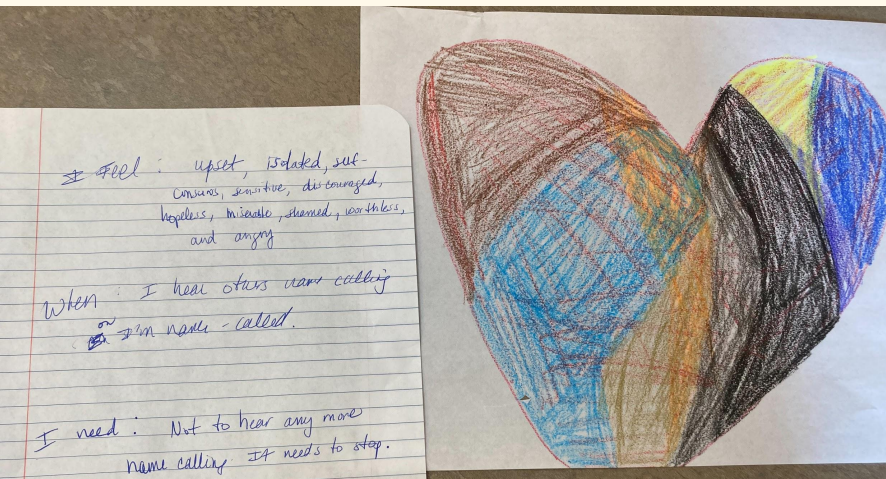 I Feel : upset, isolated, self-
consious, sensitive, discouraged,
hopeless, miserable, shamed, worthless,
and angry
When : I hear others name calling
or I'm name-called.
I need : Not to hear any more
name calling. It needs to stop.